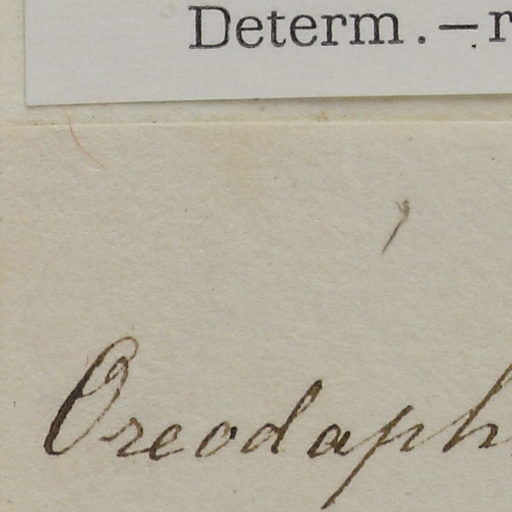 Determ.—r
Oreodaph